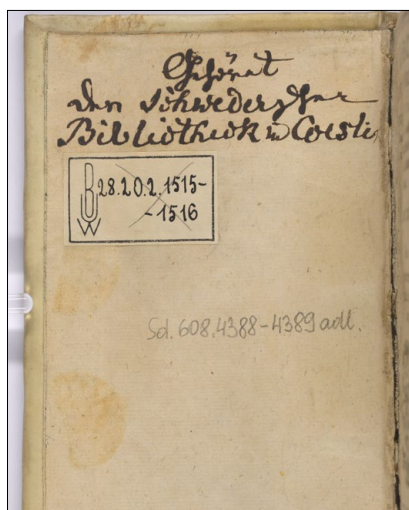 Gehöret
den Schwederschen
Bibliotheck in Coeslin
BUW
28.20.2.1515-
-1516
Sd. 608.4388-4389 adl.